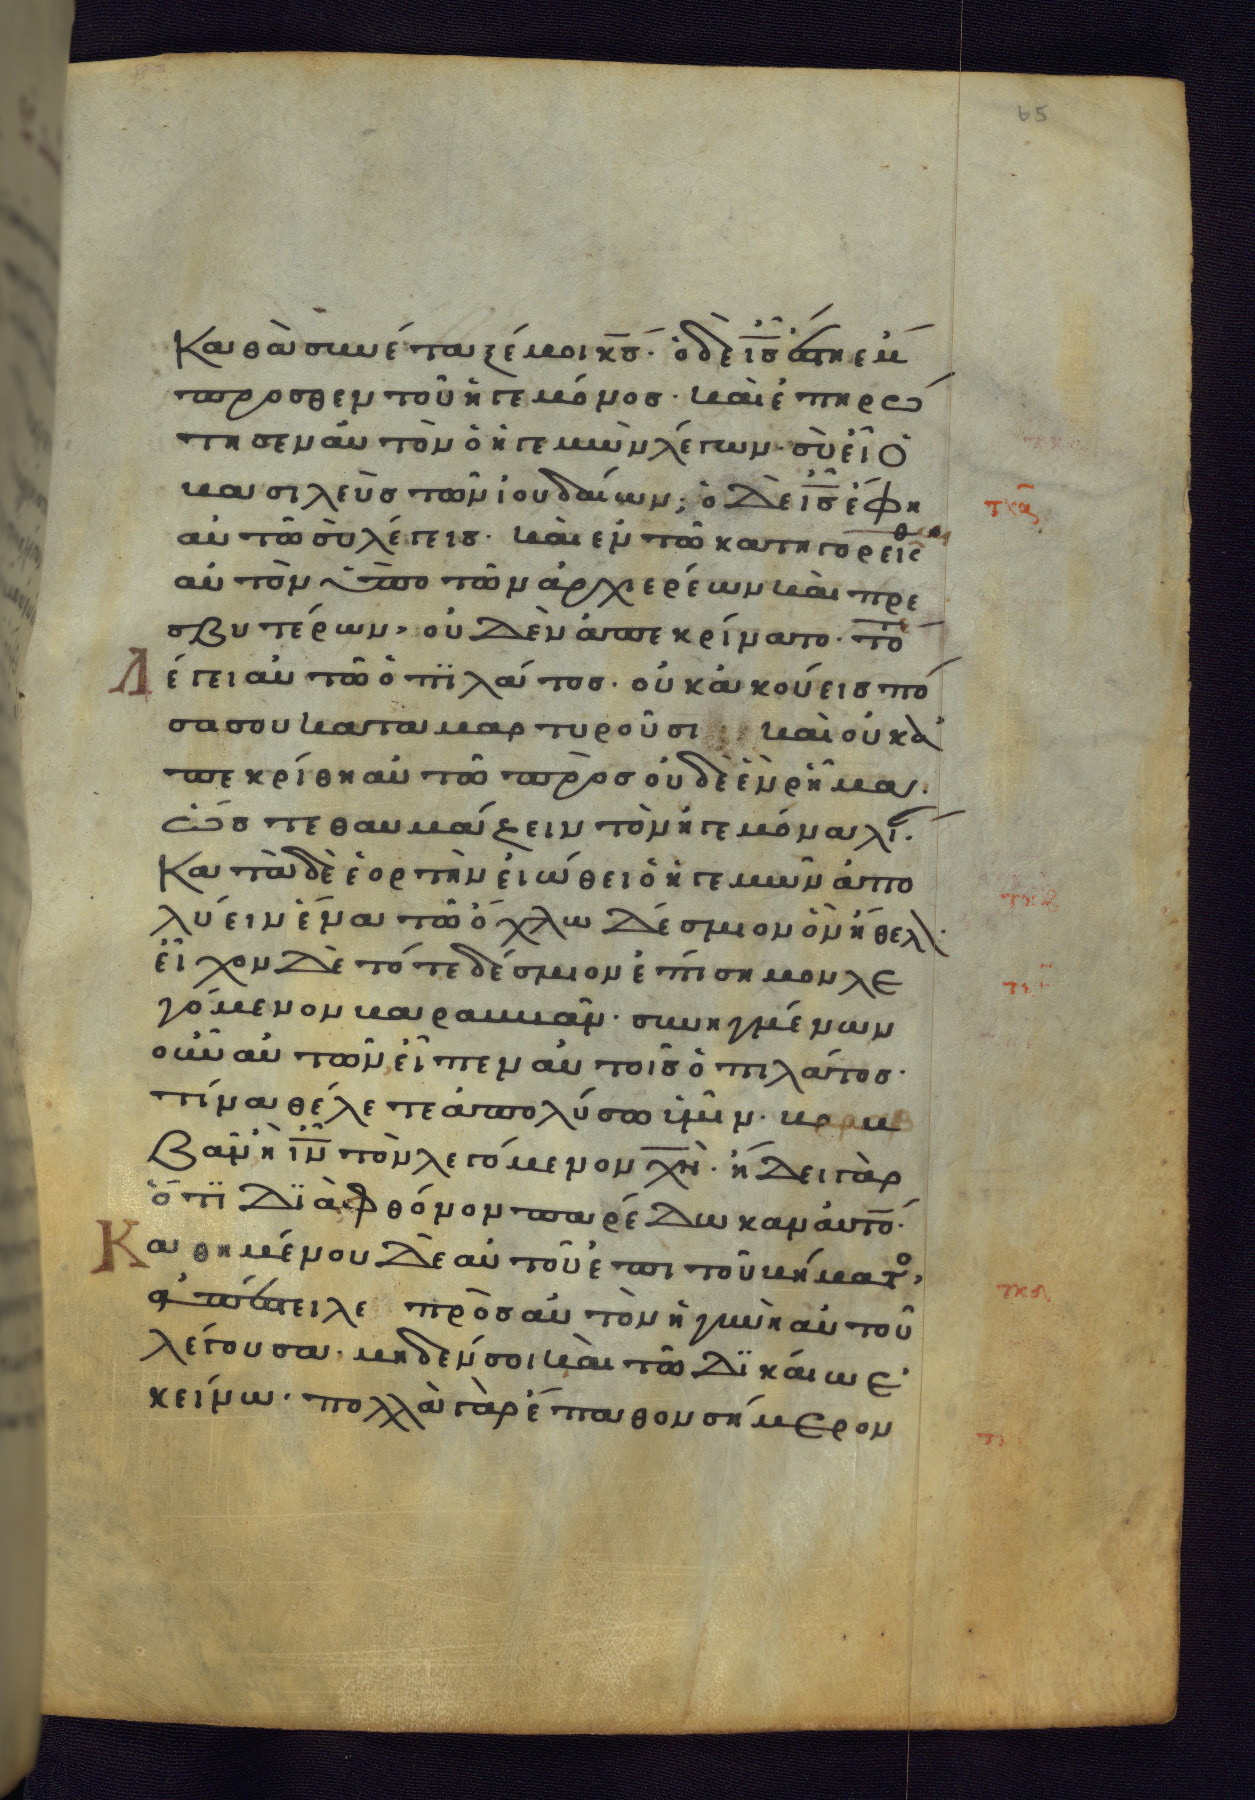 65
Καθὰ συνέταξέ μοι κ̅ς̅· ὁ δὲ ι̅ς̅ ἔστη ἔμ
προσθεν τοῦ ἡγεμόνος· καὶ ἐπηρώ
τησεν αὐτὸν ὁ ἡγεμὼν λέγων· σὺ εἶ ὁ
βασιλεὺς τῶν ἰουδαίων; ὁ δὲ ι̅ς̅ ἔφη
αὐτῶ σὺ λέγεις· καὶ ἐν τῶ κατηγορεῖσθαι
αὐτὸν ὑπὸ τῶν ἀρχιερέων καὶ πρε
σβυτέρων, οὐδὲν ἀπεκρίνατο· τό
Λέγει αὐτῶ ὁ πϊλάτος· οὐκ ἀκούεις πό
σα σου καταμαρτυροῦσι· καὶ οὐκ ἀ
πεκρίθη αὐτῶ πρὸς οὐδὲ ἓν ῥῆμα·
ὥςτε θαυμάζειν τὸν ἡγεμόνα λί·
Κατὰ δὲ ἑορτὴν εἰώθει ὁ ἡγεμὼν ἀπο
λύειν ἕνα τῶ ὄχλω δέσμιον ὃν ἤθελ·
εἶχον δὲ τότε δέσμιον ἐπίσημον λε
γόμενον βαραββᾶν· συνηγμένων
οὖν αὐτῶν εἶπεν αὐτοῖς ὁ πιλάτος·
τίνα θέλετε ἀπολύσω ὑμῖν· βαρα
βᾶν ἢ ι̅ν̅ τὸν λεγόμενον χ̅ν̅· ἤδει γὰρ
ὅτϊ δϊὰ φθόνον παρέδωκαν αὐτό·
Καθημένου δὲ αὐτοῦ ἐπι τοῦ βήματο,
ἀπέστειλε πρὸς αὐτὸν ἡ γυνὴ αὐτοῦ
λέγουσα· μηδέν σοι καὶ τῶ δϊκάιω ἐ
κείνω· πολλὰ γὰρ ἔπαθον σήμερον
τκα
τκγ